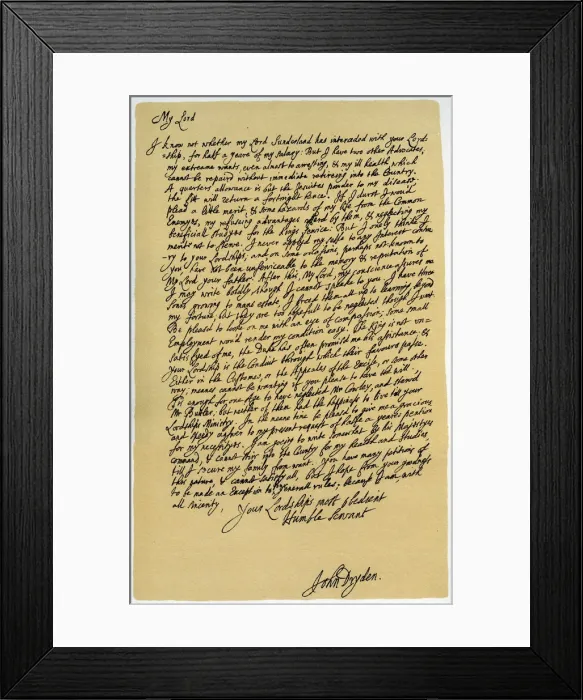 My Lord
I know not whether my Lord Sunderland has interceded with your Lord-
ship, for half a yeare of my salary: But I have two other Advocates,
my extreame wants, even almost to arresting, & my ill health which
cannot be repaird without immediate retireing into the Country.
A quarters allowance is but the Jesuites powder to my disease;
the fitt will return a fortnight hence. If I durst I would
plead a little merit, & some hazards of my life from the Common
Enemyes, my refuseing advantages offerd by them, & neglecting my
beneficiall studyes for the King's service: But I only thinke I
merit not to sterve. I never applyd my selfe to any Interest contra-
-ry to your Lordship's; and on some occasions, perhaps not known to
you have not been unserviceable to the memory & reputation of
My Lord your father. After this, My Lord, my conscience assures me
I may write boldly, though I cannot speake to you. I have three
Sonns growing to mans estate, I breed them all up to learning, beyond
my fortune; but they are too hopefull to be neglected though I want.
Be pleasd to looke on me with an eye of compassion; some small
Employment woud render my condition easy. The King is not un=
satisfyed of me, the Duke has often promisd me his assistance; &
Your Lordship is the Conduit through which their favours passe.
Either in the Customes, or the Appeales of the Excise, or some other
way; meanes cannot be wanting if you please to have the will.
Tis enough for one Age to have neglected Mr Cowley, and sterv'd
Mr Butler; but neither of them had the happiness to live till your
Lordship's Ministry. In the meane time be pleasd to give me a gracious
and speedy answer to my present request of halfe a yeares pention
for my necessityes. I am going to write somewhat by his Majestyes
command, & cannot stirr into the Country for my health and studies,
till I secure my family from want. You have many petitions of
this nature, & cannot satisfy all, but I hope from your goodness
to be made an Exception to your generall rules; because I am, with
all sincerity,
Your Lordship's most obedient
Humble Servant
John Dryden.